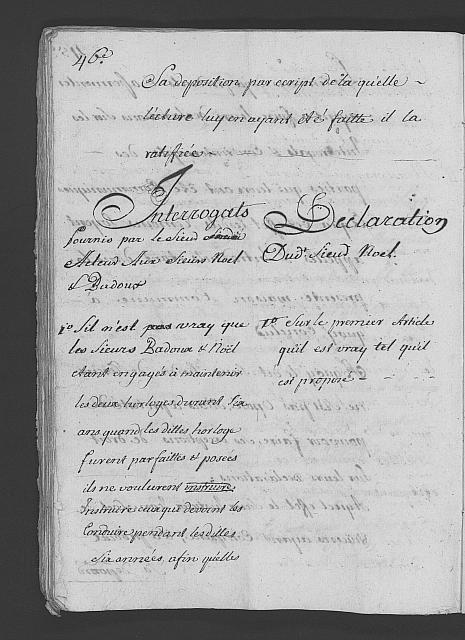 46e
Sa deposition par ecript de la quelle
lecture luy en ayant eté faitte il la
ratifiée
Interrogats
fournis par le Sieud
Acteur Aux Sieurs Noel
& Badoux
Declaration
Dud.t Sieud Noel.
1o Sil n'est pas vray que
les Sieurs Badoux & Noël
etant engagés à maintenir
les deux horloges durant six
ans quand les dittes horloge
furent parfaittes & posées
ils ne voulurent instruire
Instruire ceux qui devront les
Conduire pendant les dittes
six années, afin qu'elles
1o Sur le premier Article
qu'il est vray tel qu'il
est proposé